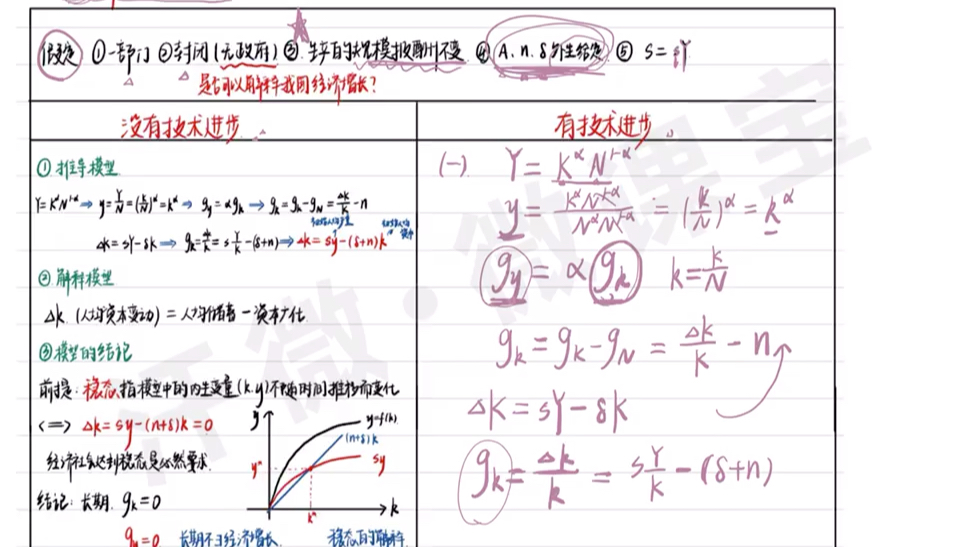 假定 ①一部门 ②封闭(无政府) ③生产的规模报酬不变 ④ A、n、δ外生给定 ⑤ S=sY
是否可以解释我国经济增长?
没有技术进步
①推导模型
Y=K^αN^{1-α} ⇒ y=Y/N=(K/N)^α=k^α ⇒ g_y=αg_k → g_k=g_K-g_N=ΔK/K-n
ΔK=sY-δK ⇒ g_k=Δk/k=s Y/K-(δ+n) ⇒ Δk=sy-(δ+n)k
②解释模型
Δk (人均资本变动)=人均储蓄-资本广化
③模型的结论
前提:稳态,指模型中的内生变量(k.y)不随时间推移而变化
<=> Δk=sy-(n+δ)k=0
经济社会达到稳态是必然要求
结论:长期 g_k=0
g_y=0 长期不日经济增长 稳态的解释
y
y=f(k)
(n+δ)k
sy
y*
k*
k
有技术进步
(一) Y=K^αN^{1-α}
y=K^αN^{1-α}/N^αN^{1-α}=(K/N)^α=k^α
g_y=αg_k k=K/N
g_k=g_K-g_N=ΔK/K-n
ΔK=sY-δK
g_k=Δk/k=s Y/K-(δ+n)
许微·微课宝